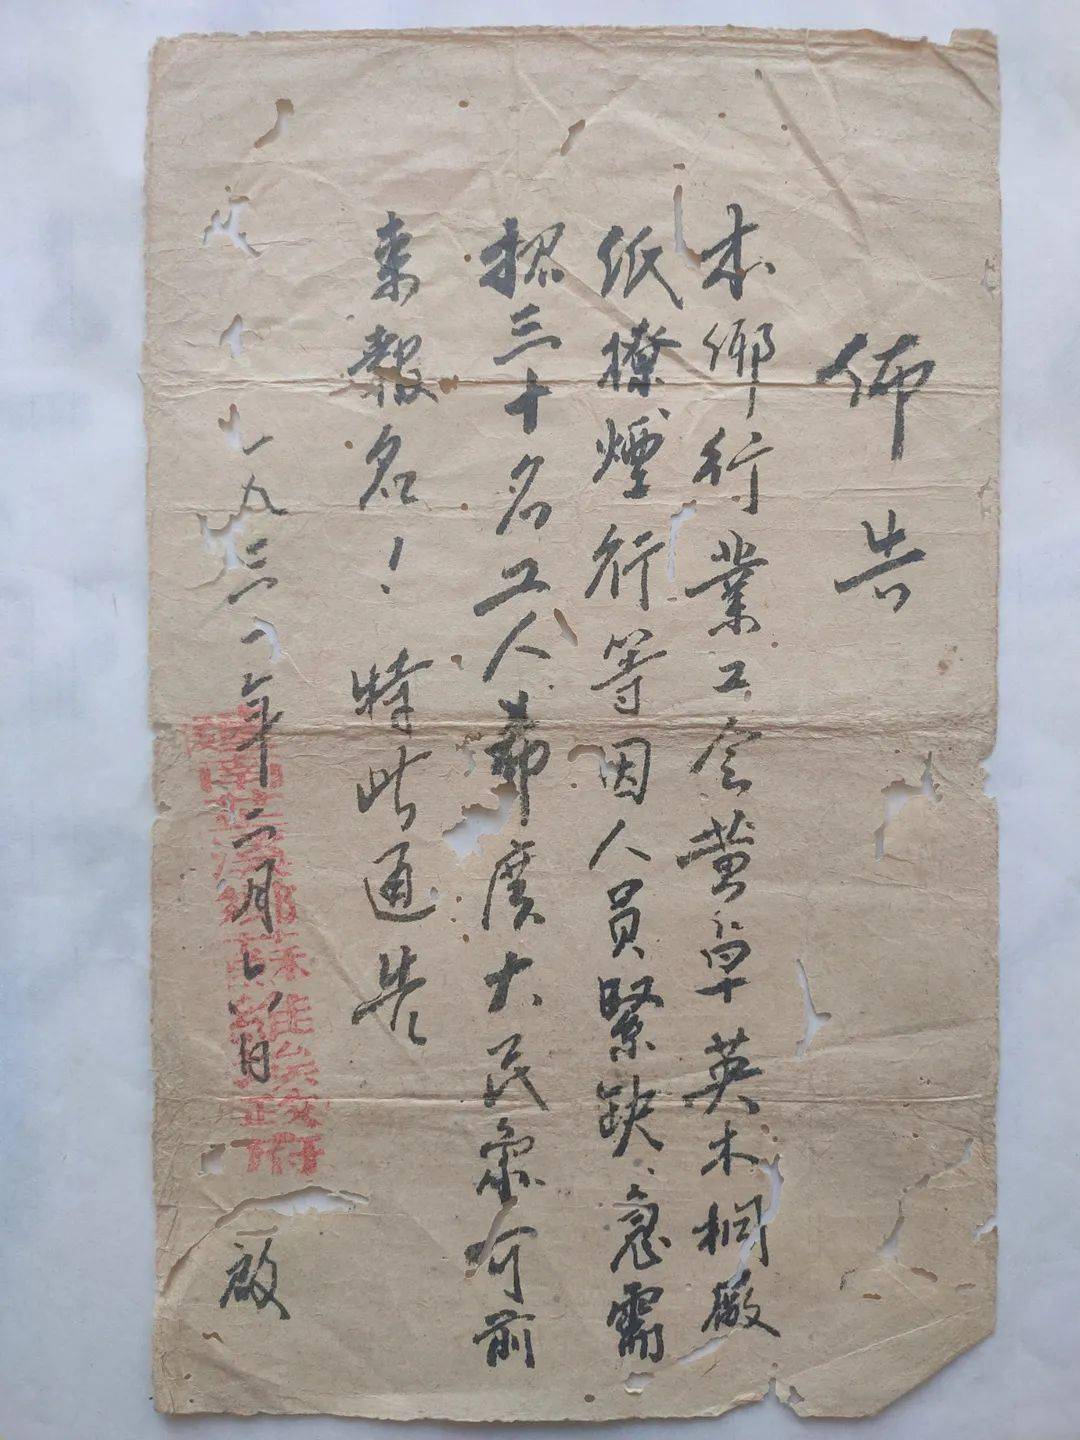 佈告
本鄉行業工会黄草英木桐厰
纸撩煙行等因人員緊缺、急需
招三十名工人希廣大民衆可前
来報名！特此通告
一九三一年二月六日 啟
蘇維埃政府